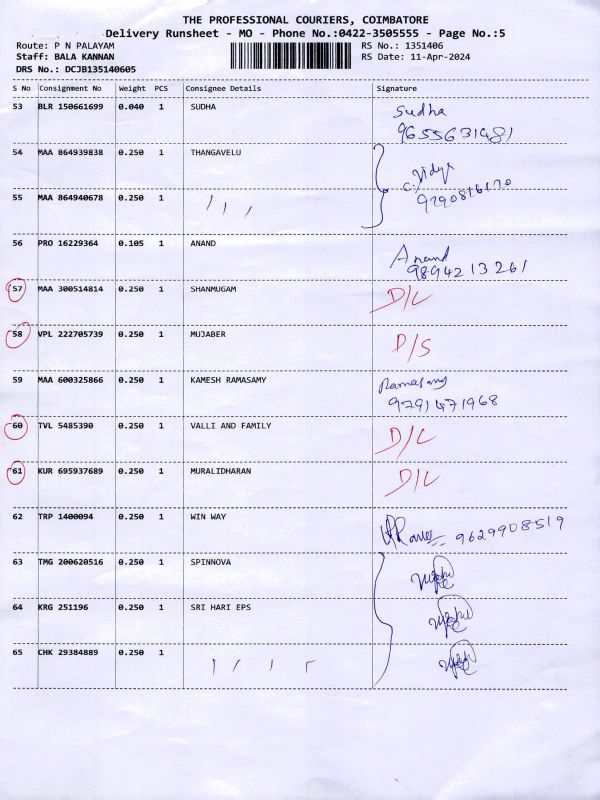 THE PROFESSIONAL COURIERS, COIMBATORE
Delivery Runsheet - MO - Phone No.:0422-3505555 - Page No.:5
Route: P N PALAYAM RS No.: 1351406
Staff: BALA KANNAN RS Date: 11-Apr-2024
DRS No.: DCJB135140605
S No Consignment No Weight PCS Consignee Details Signature
53 BLR 150661699 0.040 1 SUDHA Sudha
9655631481
54 MAA 864939838 0.250 1 THANGAVELU
C. Vidya
55 MAA 864940678 0.250 1
56 PRO 16229364 0.105 1 ANAND Anand
9894213261
57 MAA 300514814 0.250 1 SHANMUGAM D/L
58 VPL 222705739 0.250 1 MUJABER D/S
59 MAA 600325866 0.250 1 KAMESH RAMASAMY Ramasamy
9791471968
60 TVL 5485390 0.250 1 VALLI AND FAMILY D/L
61 KUR 695937689 0.250 1 MURALIDHARAN D/L
62 TRP 1400094 0.250 1 WIN WAY 9629908519
63 TMG 200620516 0.250 1 SPINNOVA
64 KRG 251196 0.250 1 SRI HARI EPS
65 CHK 29384889 0.250 1